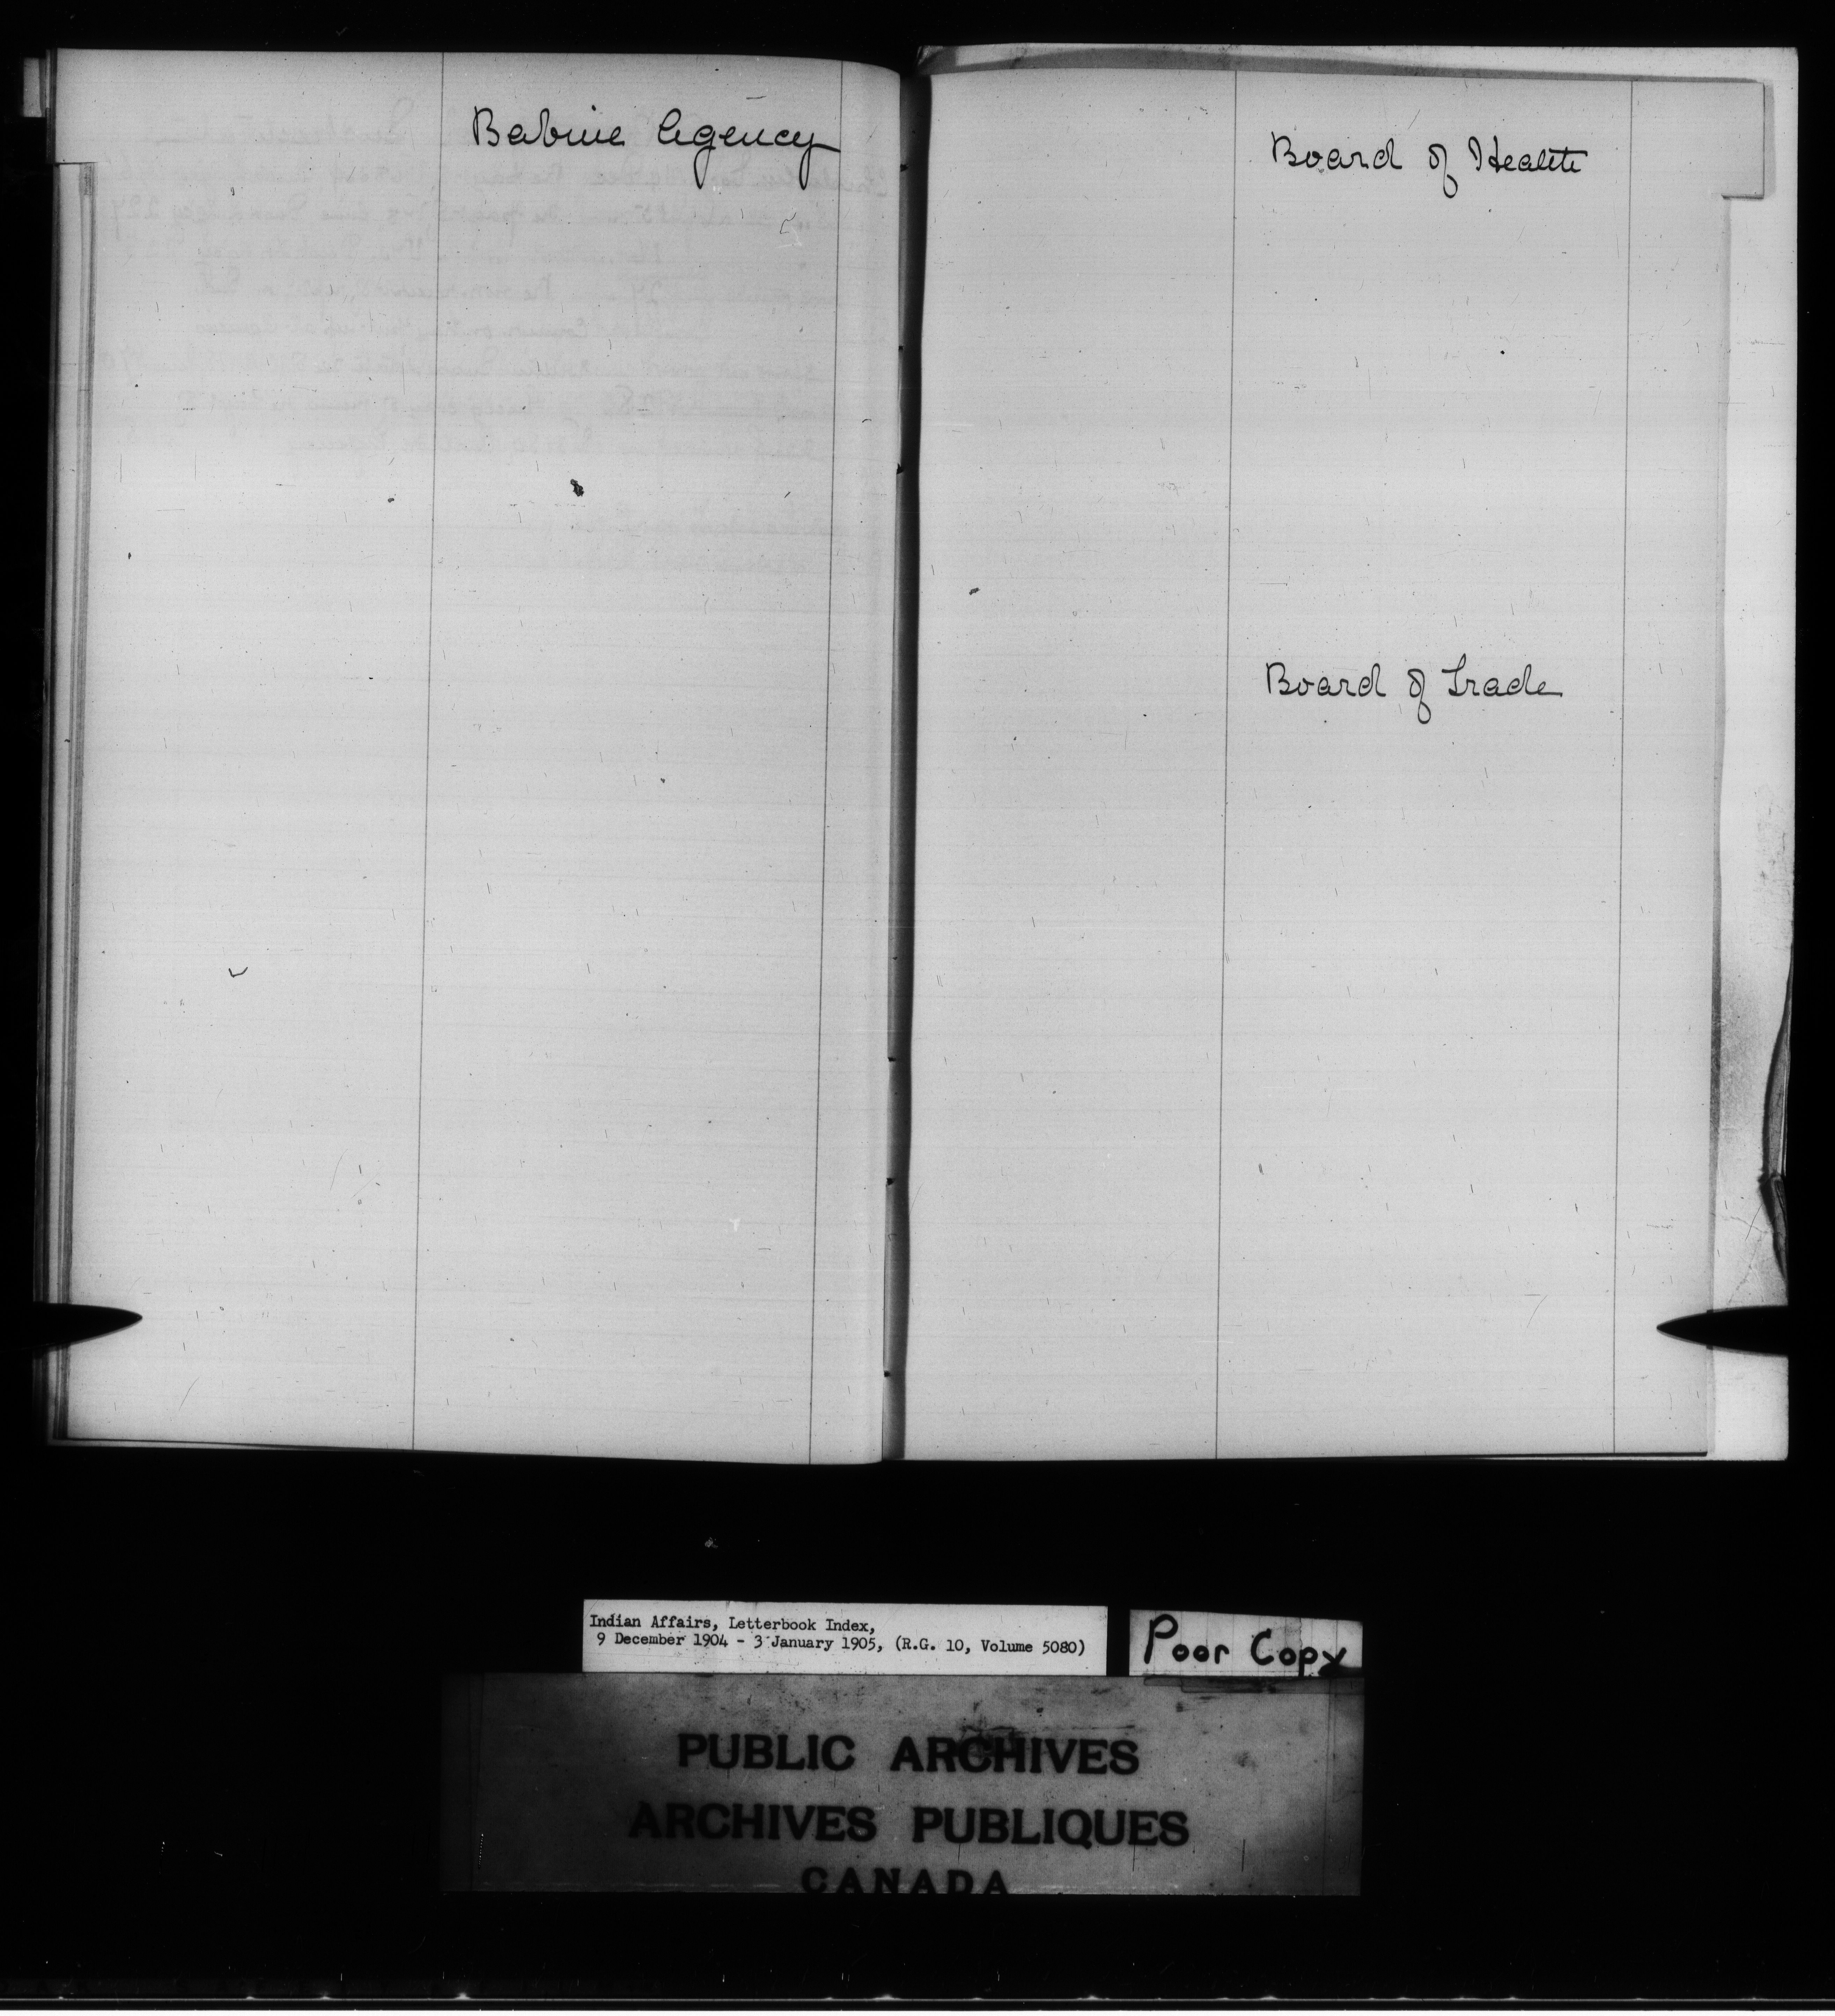 Babine Agency
Board of Health
Board of Trade
Indian Affairs, Letterbook Index,
9 December 1904 - 3 January 1905, (R.G. 10, Volume 5080)
Poor Copy
PUBLIC ARCHIVES
ARCHIVES PUBLIQUES
CANADA